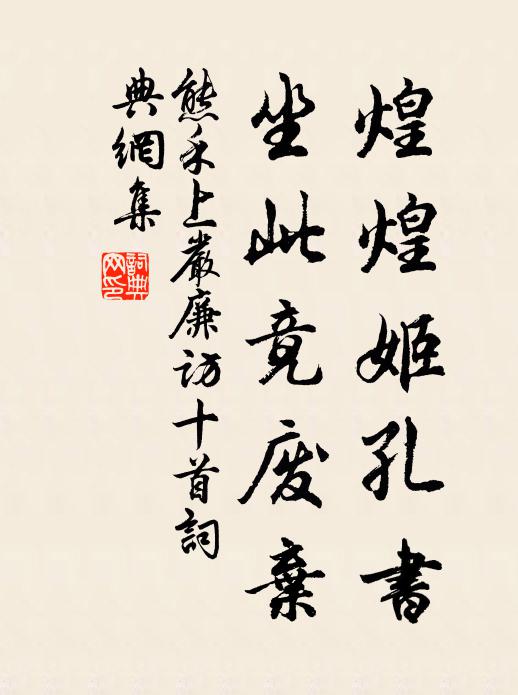 煌煌姬孔書
坐此竟废棄
熊禾上嚴廉访十首詞
典網集
詞典网印